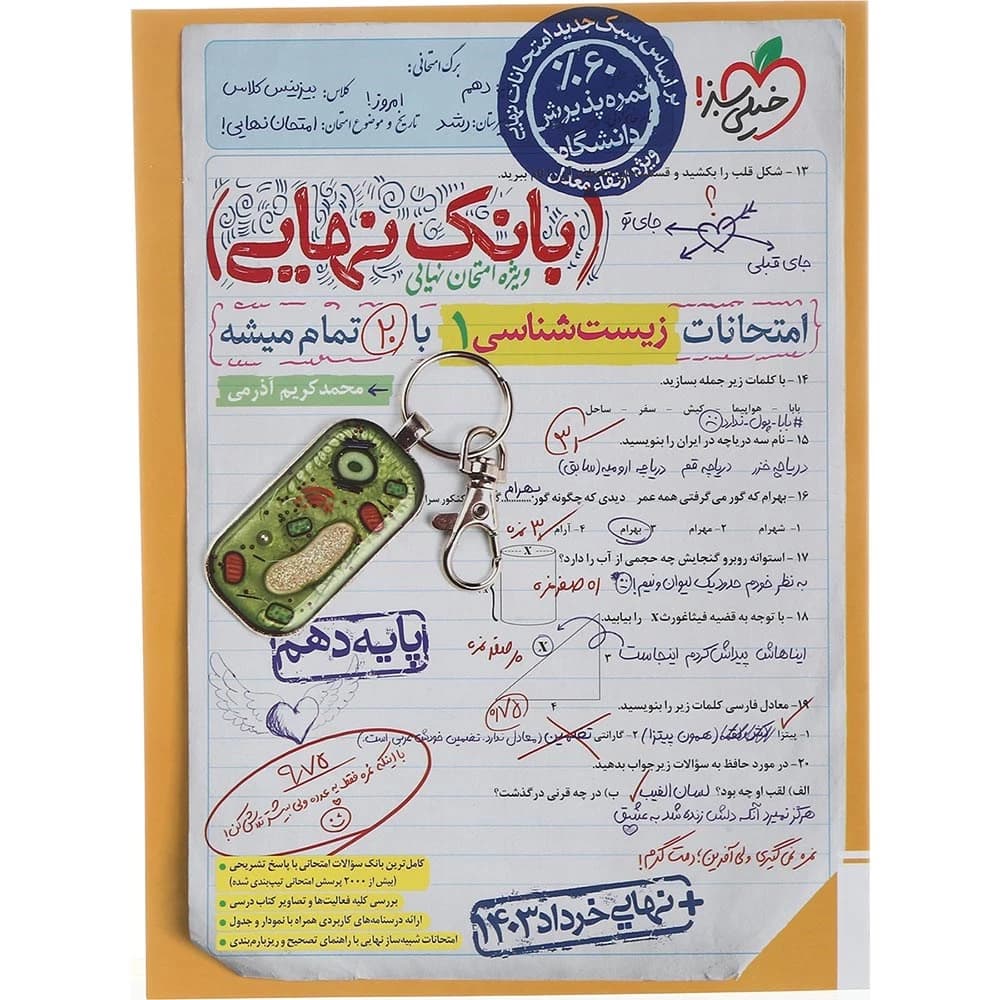 خیلی سبز!
بر اساس سبک جدید امتحانات نهایی
%۶۰
نمره پذیرش
دانشگاه
ویژه ارتقاء معدل
برگ امتحانی:
دهم کلاس: بیزینس کلاس
رشد تاریخ و موضوع امتحان: امروز! امتحان نهایی!
۱۳- شکل قلب را بکشید و
ببرید.
؟
جای تو
جای قبلی
(بانک نهایی)
ویژه امتحان نهایی
امتحانات زیست‌شناسی ۱ با ۲۰ تمام میشه
← محمدکریم آذرمی
۱۴- با کلمات زیر جمله بسازید.
بابا - هواپیما - کیش - سفر - ساحل
#بابا-پول-ندارد
۱۵- نام سه دریاچه در ایران را بنویسید.
دریاچه خزر دریاچه قم دریاچه ارومیه (سابق)
۱۶- بهرام که گور می گرفتی همه عمر دیدی که چگونه گور بهرام
۱- شهرام ۲- مهرام ۳- بهرام ۴- آرام ۳ نمره
۱۷- استوانه روبرو گنجایش چه حجمی از آب را دارد؟
X
به نظر خودم حدود یک لیوان و نیم!
۱۸- با توجه به قضیه فیثاغورث X را بیابید.
ایناهاش پیداش کردم اینجاست
X
۳
۴
پایه دهم
۰/۷۵
۱۹- معادل فارسی کلمات زیر را بنویسید.
۱- پیتزا (همون پیتزا) ۲- گارانتی تضمین (معادل ندارد. تضمین خودش عربی است.)
۲۰- در مورد حافظ به سؤالات زیر جواب بدهید.
الف) لقب او چه بود؟ لسان الغیب ب) در چه قرنی درگذشت؟
هرگز نمیرد آنکه دلش زنده شد به عشق
۹/۷۵
با اینکه نمره فقط یه عدده ولی بیشتر تلاش کن!
نمره نمی‌گیری ولی آفرین؛ دمت گرم!
کامل‌ترین بانک سؤالات امتحانی با پاسخ تشریحی
(بیش از ۲۰۰۰ پرسش امتحانی تیپ‌بندی شده)
بررسی کلیه فعالیت‌ها و تصاویر کتاب درسی
ارائه درسنامه‌های کاربردی همراه با نمودار و جدول
امتحانات شبیه‌ساز نهایی با راهنمای تصحیح و ریزبارم‌بندی
+ نهایی خرداد ۱۴۰۳